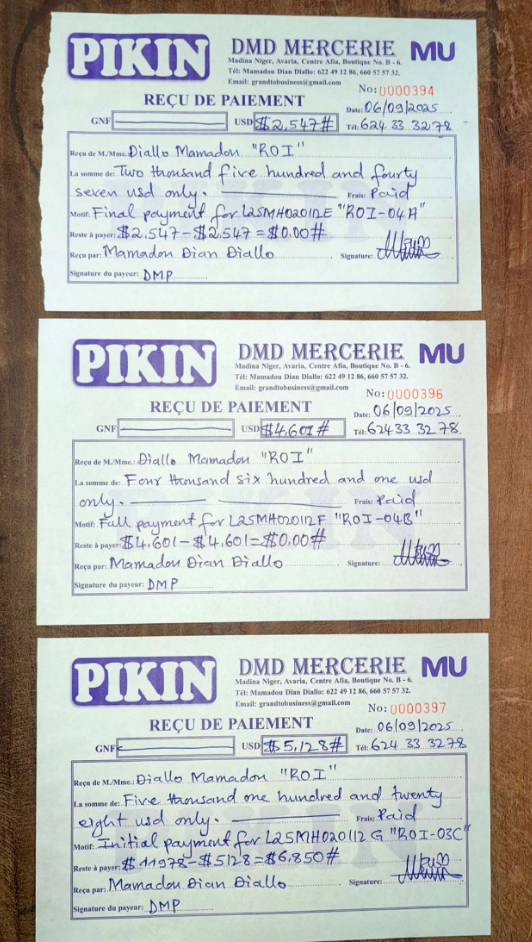 PIKIN
DMD MERCERIE MU
Madina Niger, Avaria, Centre Afia, Boutique No. B - 6.
Tél: Mamadou Dian Diallo: 622 49 12 86, 660 57 57 32.
Email: grandtobusiness@gmail.com
No: 0000394
REÇU DE PAIEMENT
Date: 06/09/2025
GNF USD $2,547# Tél: 624 33 32 78
Reçu de M./Mme: Diallo Mamadou "ROI"
La somme de: Two thousand five hundred and fourty
seven usd only. Frais: Paid
Motif: Final payment for L25MH02012E "ROI-04A"
Reste à payer: $2.547-$2.547=$0.00#
Reçu par: Mamadou Dian Diallo Signature:
Signature du payeur: DMP
PIKIN
DMD MERCERIE MU
Madina Niger, Avaria, Centre Afia, Boutique No. B - 6.
Tél: Mamadou Dian Diallo: 622 49 12 86, 660 57 57 32.
Email: grandtobusiness@gmail.com
No: 0000396
REÇU DE PAIEMENT
Date: 06/09/2025
GNF USD $4.601# Tél: 624 33 32 78
Reçu de M./Mme.: Diallo Mamadou "ROI"
La somme de: Four thousand six hundred and one usd
only. Frais: Paid
Motif: Full payment for L25MH020112F "ROI-04B"
Reste à payer: $4.601-$4.601=$0.00#
Reçu par: Mamadou Dian Diallo Signature:
Signature du payeur: DMP
PIKIN
DMD MERCERIE MU
Madina Niger, Avaria, Centre Afia, Boutique No. B - 6.
Tél: Mamadou Dian Diallo: 622 49 12 86, 660 57 57 32.
Email: grandtobusiness@gmail.com
No: 0000397
REÇU DE PAIEMENT
Date: 06/09/2025
GNF USD $5,128# Tél: 624 33 32 78
Reçu de M./Mme.: Diallo Mamadou "ROI"
La somme de: Five thousand one hundred and twenty
eight usd only. Frais: Paid
Motif: Initial payment for L25MH020112G "ROI-03C"
Reste à payer: $11978-$5128=$6,850#
Reçu par: Mamadou Dian Diallo Signature:
Signature du payeur: DMP